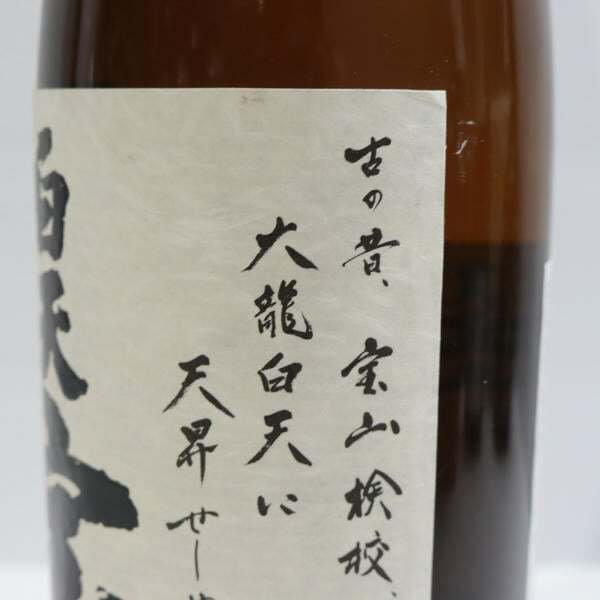 古の昔、宝山検校、
大龍白天に
天昇せし
白天宝